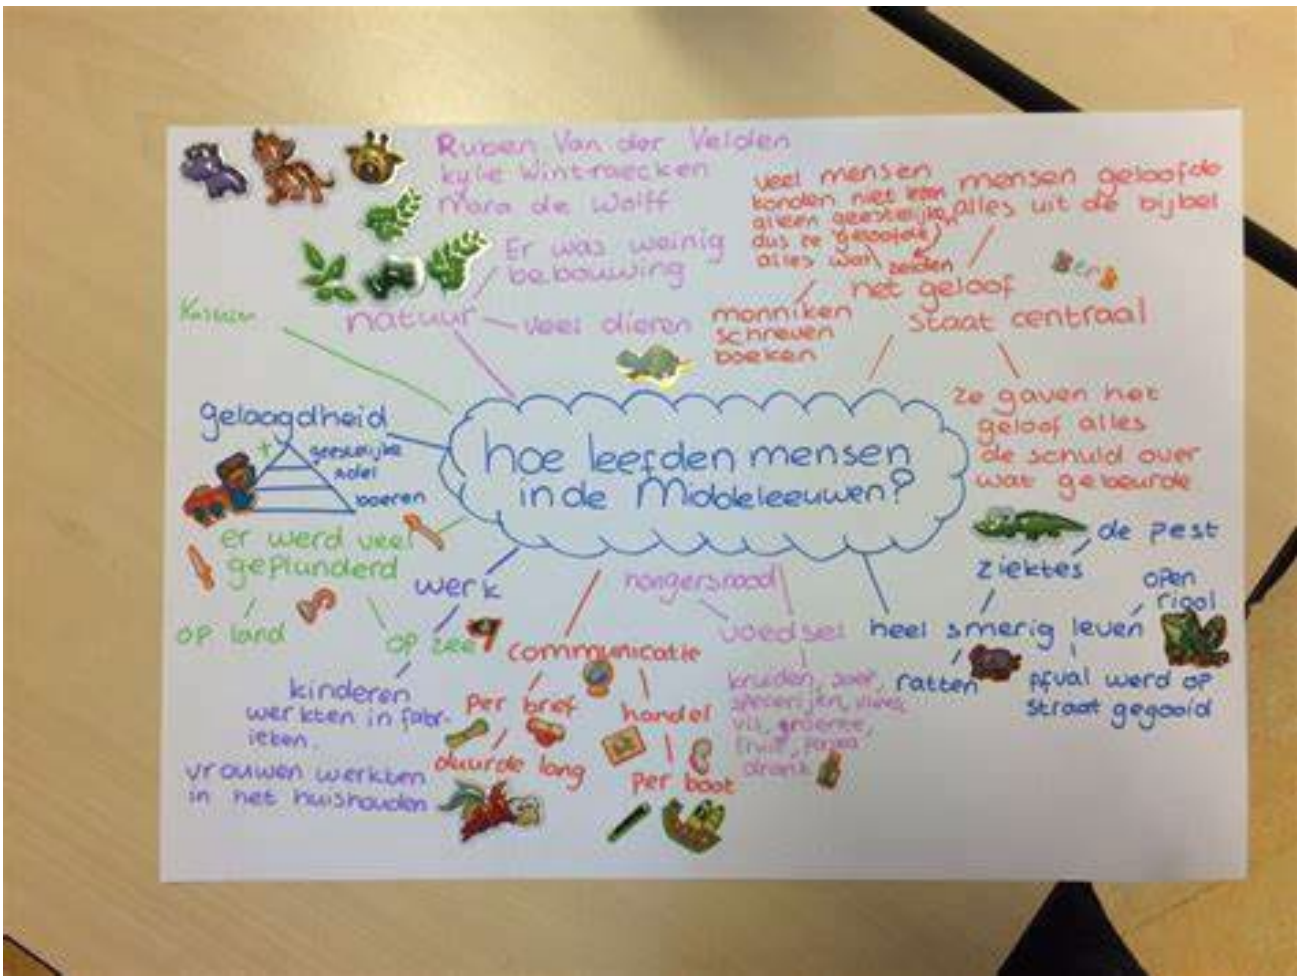 Ruben Van der Velden
Kylie Wintraecken
Mara de Wolff
Er was weinig
bebouwing
natuur
veel dieren
veel mensen
konden niet lezen
alleen geestelijken
dus ze geloofde
alles wat
zeiden
mensen geloofde
alles uit de bijbel
het geloof
staat centraal
monniken
schreven
boeken
ze gaven het
geloof alles
de schuld over
wat gebeurde
gelaagdheid
+
geestelijke
adel
boeren
hoe leefden mensen
in de Middeleeuwen?
er werd veel
geplunderd
op land
op zee
werk
kinderen
werkten in fabr-
ieken.
vrouwen werkten
in het huishouden
communicatie
per brief
duurde lang
handel
per boot
hongersnood
voedsel
kruiden, soep,
specerijen, vlees,
vis, groente,
fruit,
drank
heel smerig leven
ziektes
de pest
open
riool
ratten
afval werd op
straat gegooid